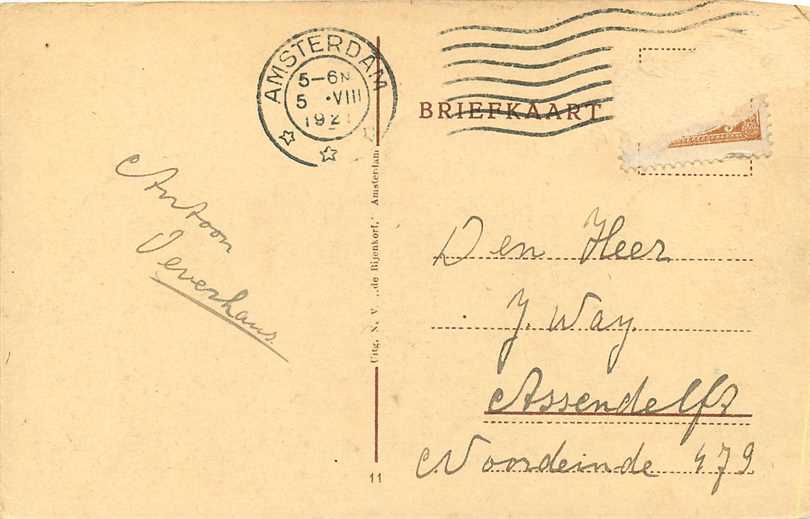 AMSTERDAM
5-6N
5 ·VIII
192
BRIEFKAART
Antoon
Oeverhaus
Uitg. N. V. „de Bijenkorf,” Amsterdam
Den Heer
J. Way.
Assendelft
Noordeinde 479
11